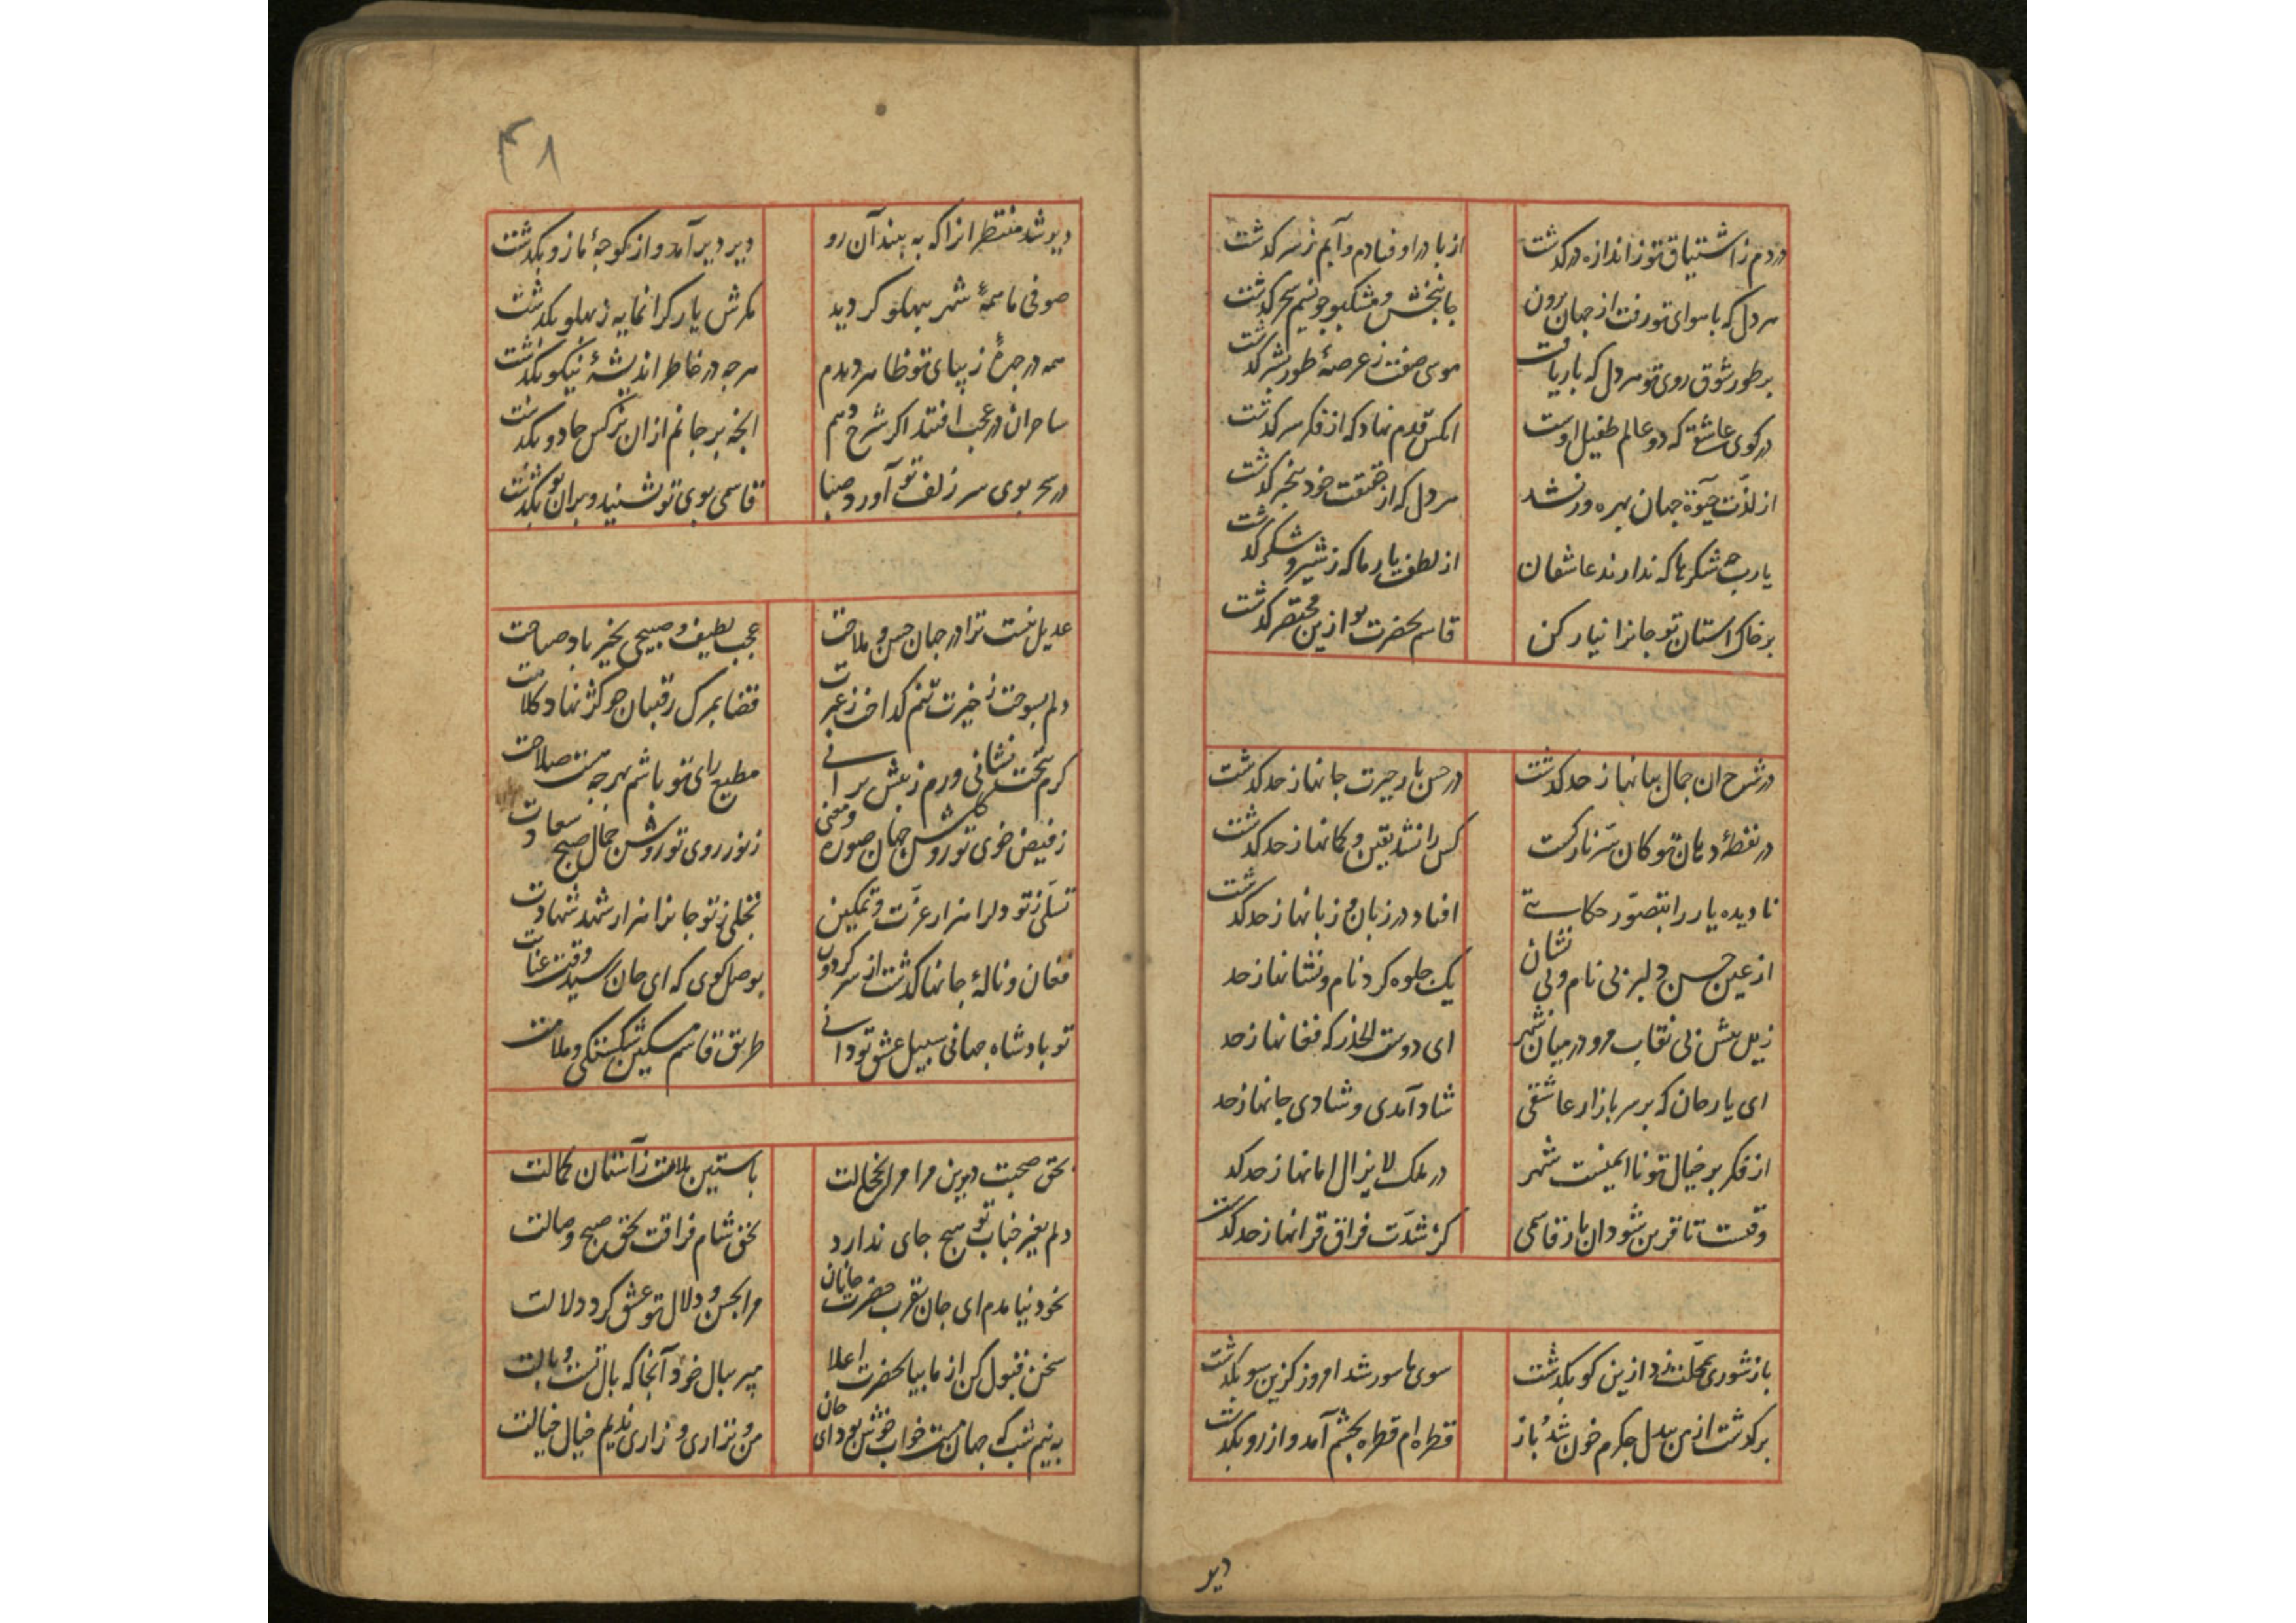 دردم ز اشتیاق تو ز اندازه درکذشت از پا دراوفتادم و آبم ز سر کذشت
هر دل که با هوای تو رفت از جهان برون جانبخش و مشکبو چو نسیم سحر کذشت
بر طور شوق روی تو هر دل که بار یافت موسی صفت ز عرصهٔ طور بشر کذشت
در کوی عاشقی که دو عالم طفیل اوست انکس قدم نهاد که از فکر سر کذشت
از لذت حیوة جهان بهره ور نشد هر دل که از حقیقت خود بیخبر کذشت
یارب چه شکرها که ندارند عاشقان از لطف یار ما که ز شیر و شکر کذشت
بر خاک استان تو جانرا نیار کن قاسم بحضرت تو ازین مختصر کذشت
در شرح ان جمال بیانها ز حد کذشت در حسن یار حیرت جانها ز حد کذشت
در نقطهٔ دهان تو کان سر نازکست کس را نشد یقین و کمانها ز حد کذشت
نادیده یار را بتصور حکایتی افتاد در زبان و زبانها ز حد کذشت
از عین حسن دلبر بی نام و بی نشان یک جلوه کرد نام و نشانها ز حد
زین بیش بی نقاب مرو در میان شهر ای دوست الحذر که فغانها ز حد
ای یار جان که بر سر بازار عاشقی شاد آمدی و شادی جانها ز حد
از فکر بر خیال تو نا ایمنست شهر در ملک لا یزال امانها ز حد کذ
وقتست تا قرین شود ان یار قاسمی کز شدت فراق قرانها ز حد کذشت
باز شوری بمحلت زد و ازین کو بکذشت سوی ما سور شد امروز کزین سو بکذشت
بر کذشت از من بیدل جکرم خون شد و باز قطره ام قطره بچشم آمد و از رو بکذشت
دیر
۴۸
دیر شد منتظر انرا که به بیند آن رو دیر دیر آمد و از کوچهٔ ما زو بکذشت
صوفی ما همهٔ شهر بپهلو کردید مکرش یار کرانمایه ز پهلو بکذشت
همه در چهرهٔ زیبای تو ظاهر دیدم هرچه در خاطر اندیشهٔ نیکو بکذشت
ساحران در عجب افتند اکر شرح دهم انچه بر جانم از ان نرکس جادو بکذشت
در سحر بوی سر زلف تو آورد صبا قاسمی بوی تو بشنید و بران بو بکذشت
عدیل نیست ترا در جهان حسن و ملاحت عجب لطیف و صبیحی بخیر باد صباحت
دلم بسوخت ز حیرت تنم کداخت ز غیرت قضا بمرک رقیبان چو کژ نهاد کلاهت
کرم بتخت نشانی ورم ز پیش برانی مطیع رای تو باشم بهرچه هست صلاحت
ز فیض خوی تو روشن جهان صوره و معنی ز نور روی تو روشن جمال صبح سعادت
تسلی ز تو دلرا هزار عزت و تمکین تجلی ز تو جانرا هزار شهد شهادت
فغان و نالهٔ جانها کذشت از سر کردون بوصل کوی که ای جان رسید وقت عنایت
تو پادشاه جهانی سبیل عشق تو دانی طریق قاسم مسکین شکستکی و ملامت
بحق صحبت دیرین مرا مران بخجالت باستین ملامت ز آستان کمالت
دلم بغیر جناب تو هیچ جای ندارد بحق شام فراقت بحق صبح وصالت
بخود نیامدم ای جان بقرب حضرت جانان مرا بحسن و دلال تو عشق کرد دلالت
سخن قبول کن از ما بیا بحضرت اعلا مپر ببال خرد آنجا که بال تست وبالت
به نیم شب که جهان مست خواب خوش بود ای جان من و نزاری و زاری ندیم خیال خیالت